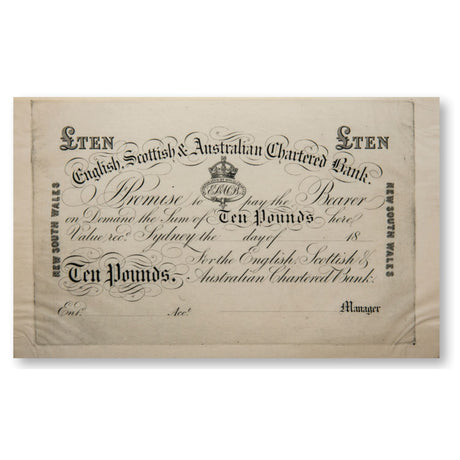 £TEN £TEN
English, Scottish & Australian Chartered Bank.
I Promise to pay the Bearer
on Demand the Sum of Ten Pounds here
Value recd. Sydney the day of 18
For the English, Scottish &
Ten Pounds. Australian Chartered Bank.
Entd. Acct. Manager
NEW SOUTH WALES
NEW SOUTH WALES